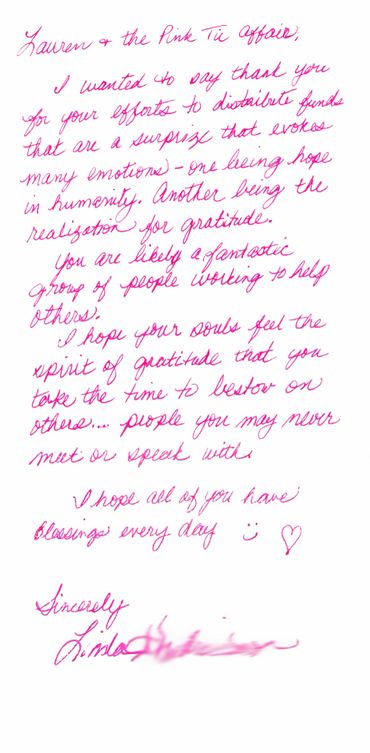 Lauren & the Pink Tie Affair,
I wanted to say thank you
for your efforts to distribute funds
that are a surprize that evokes
many emotions - one being hope
in humanity. Another being the
realization for gratitude.
You are likely a fantastic
group of people working to help
others.
I hope your souls feel the
spirit of gratitude that you
take the time to bestow on
others.... people you may never
meet or speak with.
I hope all of you have
Blessings every day :) ♡
Sincerely
Linda